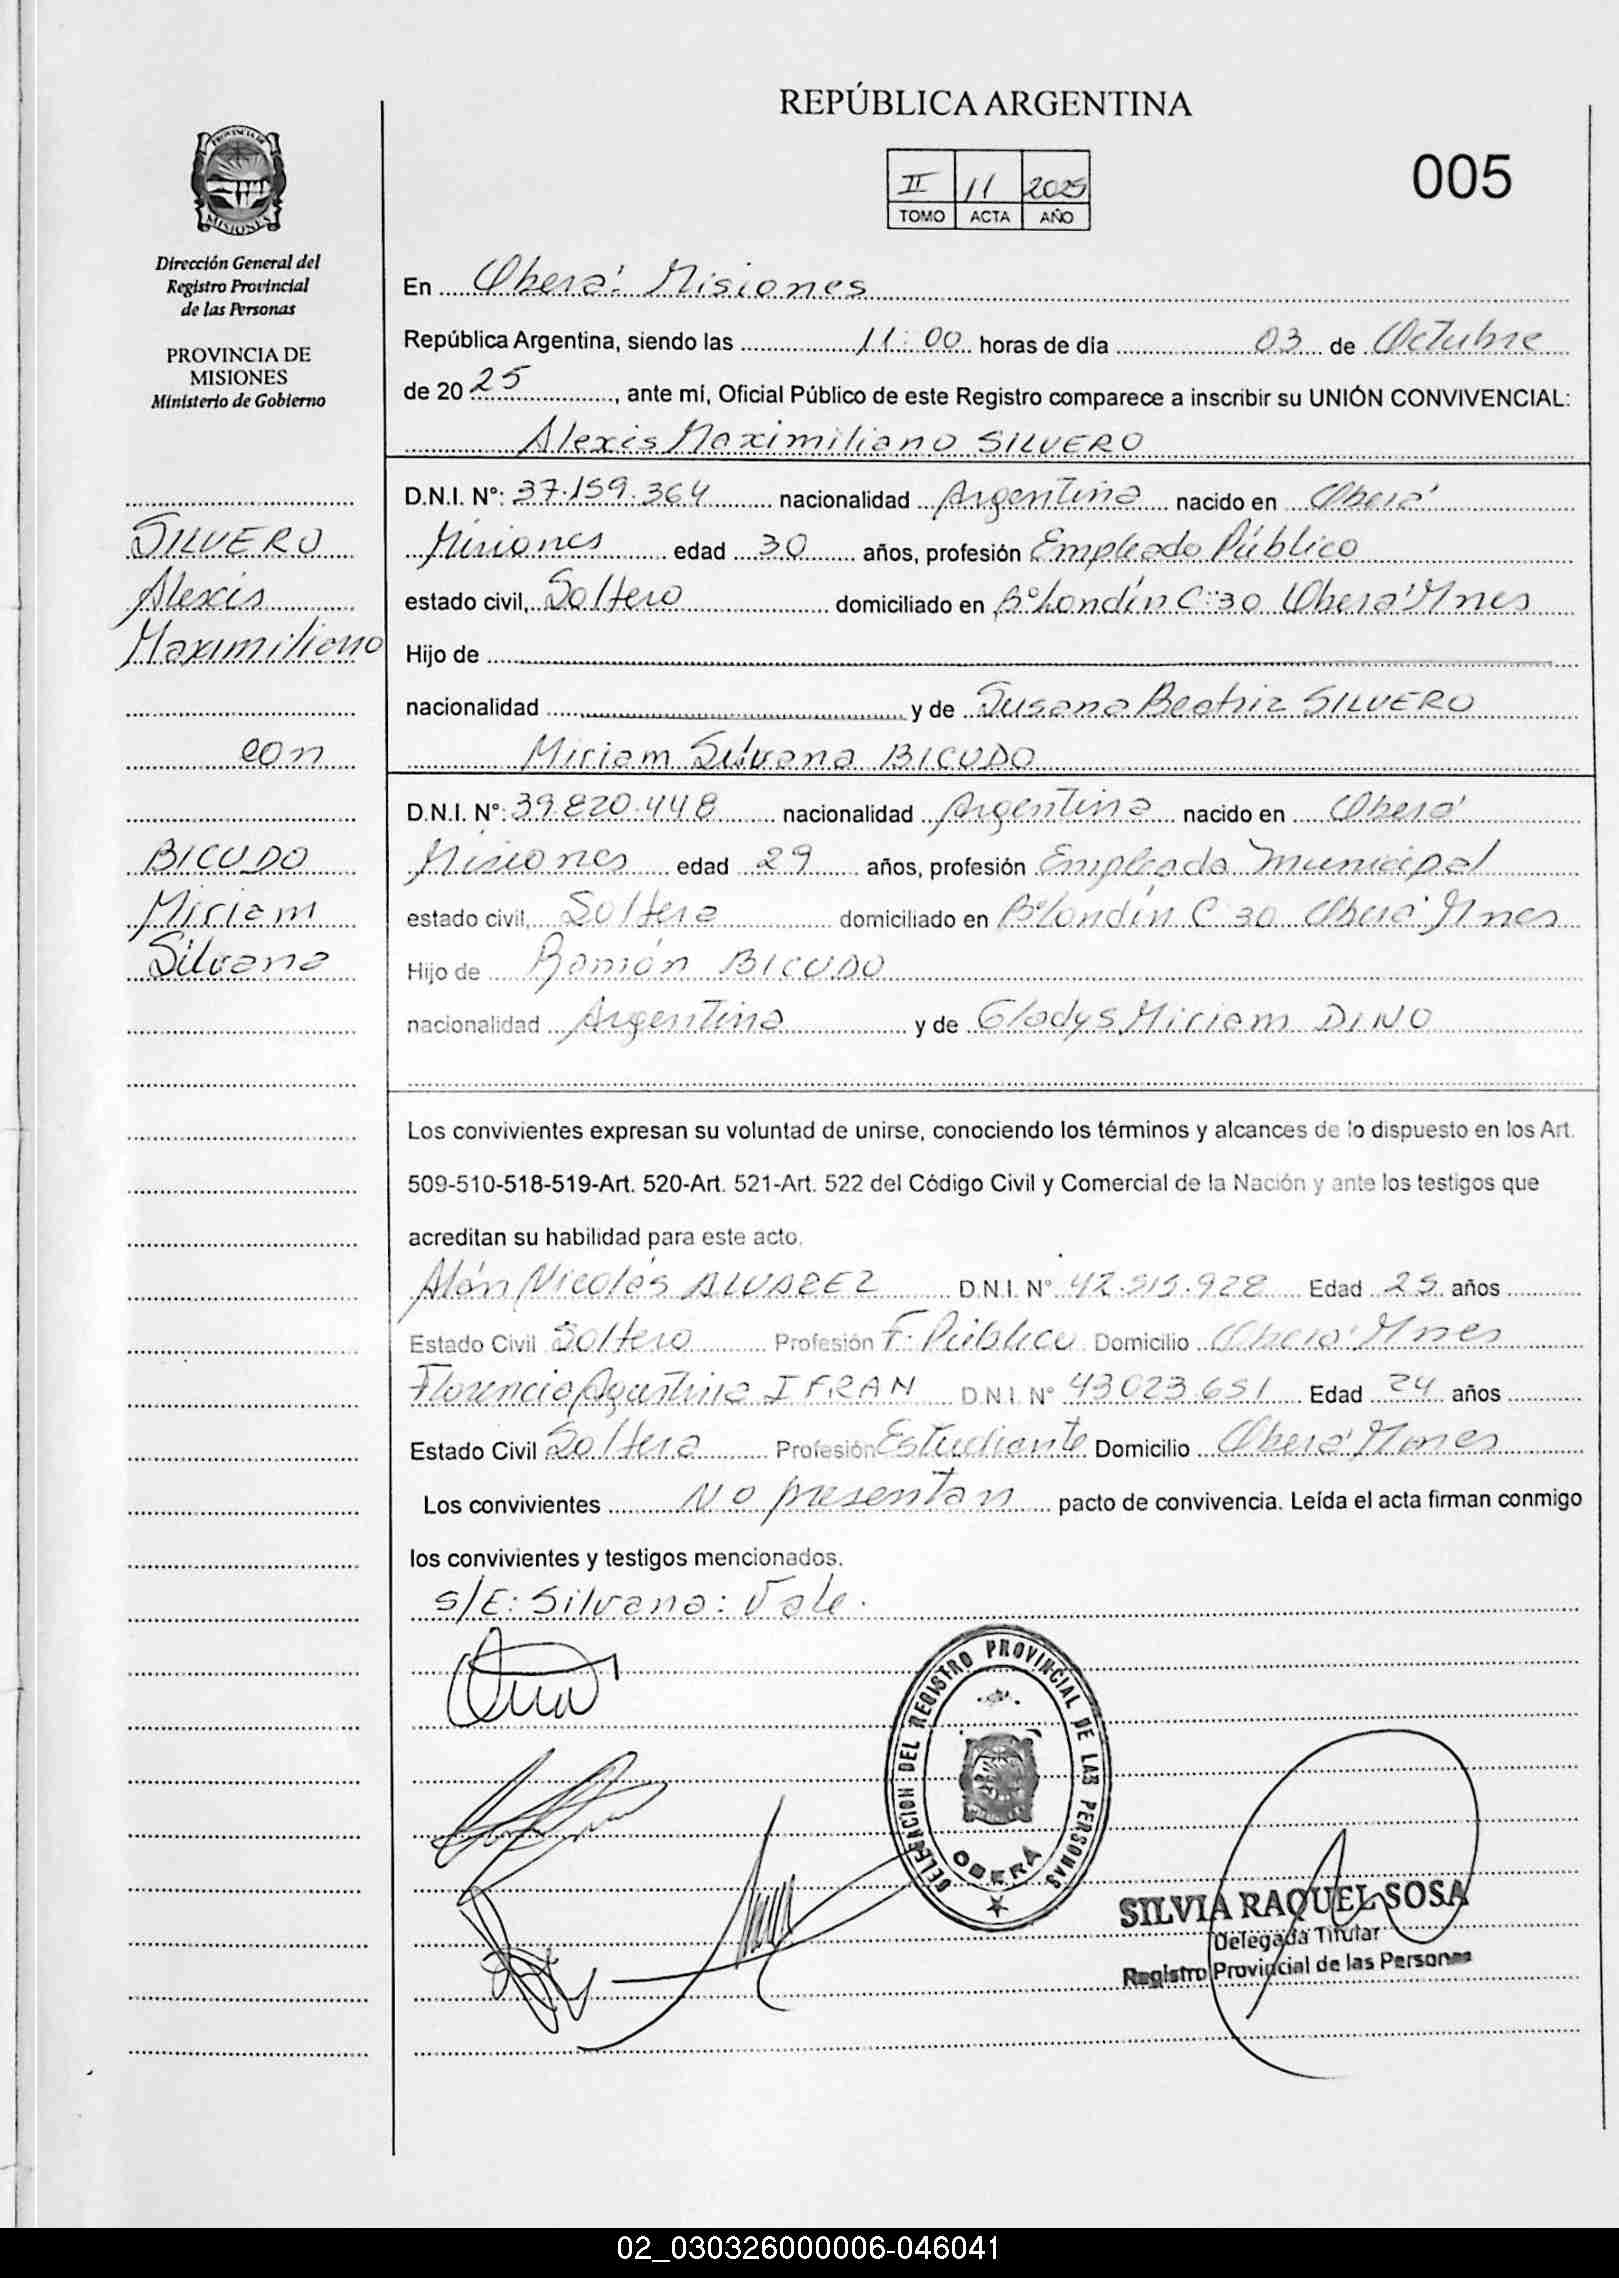 REPÚBLICA ARGENTINA
II 11 2025
TOMO ACTA AÑO
005
PROVINCIA DE
MISIONES
Dirección General del
Registro Provincial
de las Personas
PROVINCIA DE
MISIONES
Ministerio de Gobierno
SILVERO
Alexis
Maximiliano
con
BICUDO
Miriam
Silvana
En Oberá: Misiones
República Argentina, siendo las 11:00 horas de día 03 de Octubre
de 20 25, ante mí, Oficial Público de este Registro comparece a inscribir su UNIÓN CONVIVENCIAL:
Alexis Maximiliano SILVERO
D.N.I. Nº: 37.159.364 nacionalidad Argentina nacido en Oberá
Misiones edad 30 años, profesión Empleado Público
estado civil, Soltero domiciliado en Bº Londín C:30 Oberá Mnes
Hijo de
nacionalidad y de Susana Beatriz SILVERO
Miriam Silvana BICUDO
D.N.I. Nº: 39.820.448 nacionalidad Argentina nacido en Oberá
Misiones edad 29 años, profesión Empleada Municipal
estado civil, Soltera domiciliado en Bº Londín C:30 Oberá Mnes
Hijo de Ramón BICUDO
nacionalidad Argentina y de Gladys Miriam DINO
Los convivientes expresan su voluntad de unirse, conociendo los términos y alcances de lo dispuesto en los Art.
509-510-518-519-Art. 520-Art. 521-Art. 522 del Código Civil y Comercial de la Nación y ante los testigos que
acreditan su habilidad para este acto.
Alán Nicolás ALVAREZ D.N.I. Nº 42.515.928 Edad 25 años
Estado Civil Soltero Profesión F. Público Domicilio Oberá Mnes
Florencia Agustina IFRAN D.N.I. Nº 43023.651 Edad 24 años
Estado Civil Soltera Profesión Estudiante Domicilio Oberá Mnes
Los convivientes No presentan pacto de convivencia. Leída el acta firman conmigo
los convivientes y testigos mencionados.
S/E: Silvana: Vale.
DELEGACION DEL REGISTRO PROVINCIAL DE LAS PERSONAS
OBERÁ
SILVIA RAQUEL SOSA
Delegada Titular
Registro Provincial de las Personas
02_030326000006-046041